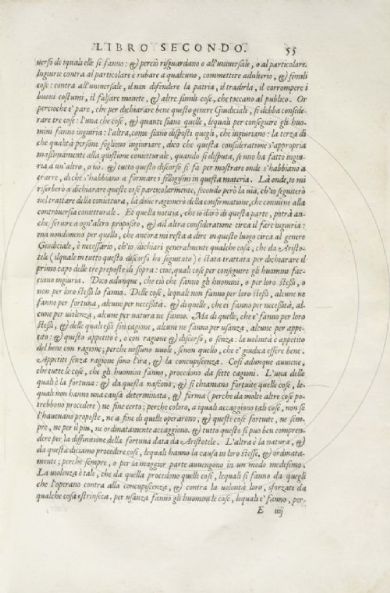 LIBRO SECONDO. 55
uersi di iquali elle si fanno: & perciò risguardano o all'uniuersale, o al particolare.
Ingiurie contra al particolare è rubare a qualcuno, commettere adulterio, & simili
cose: contra all'uniuersale, il non difendere la patria, il tradirla, il corrompere i
buoni costumi, il falsare monete, & altre simili cose, che toccano al publico. Or
percioche è pare, che per dichiarare bene questo genere Giudiciale, si debba conside-
rare tre cose: l'una che cose, & quante siano quelle, lequali per conseguire gli huo-
mini fanno ingiuria: l'altra, come siano disposti quegli, che ingiuriano: la terza di
che qualità persone sogliono ingiuriare, dico che questa consideratione s'appropria
massimamente alla quistione conietturale, quando si disputa, se uno ha fatto ingiu-
ria a un'altro, o no. & tutto questo discorso si fa per mostrare onde s'habbiano a
trarre, di che s'habbiano a formare i sillogismi in questa materia. Là onde, io mi
riserberò a dichiarare queste cose particolarmente, secondo però la uia, ch'io seguiterò
nel trattare della conuettura, là doue ragionerò della confirmatione, che conuiene alla
controuersia conietturale. Et quella notitia, che io darò di questa parte, potrà an-
che seruire a ogn'altro proposito, & ad altra consideratione circa il fare ingiuria:
ma nondimeno per quello, che ancora mi resta a dire in questo luogo circa al genere
Giudiciale, è necessario, ch'io dichiari generalmente qualche cosa, che da Aristo-
tele (ilquale in tutto questo discorso ho seguitato) è stata trattata per dichiarare il
primo capo delle tre proposte di sopra: cioè, quai cose per conseguire gli huomini fac-
ciano ingiuria. Dico adunque, che ciò che fanno gli huomini, o per loro stessi, o
non per loro stessi lo fanno. Delle cose, lequali non fanno per loro stessi, alcune ne
fanno per fortuna, alcune per necessità. & di quelle, che ei fanno per necessità, al-
cune per uiolenza, alcune per natura ne fanno. Ma di quelle, che e' fanno per loro
stessi, & delle quali essi son cagione, alcune ne fanno per usanza, alcune per appe-
tito: & questo appetito è, o con ragione & discorso, o senza: la uolontà è appetito
del bene con ragione; perche nessuno uuole, senon quello, che e' giudica essere bene.
Appetiti senza ragione sono l'ira, & la concupiscenza. Così adunque auuiene,
che tutte le cose, che gli huomini fanno, procedono da sette cagioni. L'una delle
quali è la fortuna: & da questa nascono, & si chiamano fortuite quelle cose, le-
quali non hanno una causa determinata, & ferma; perche da molte altre cose po-
trebbono procedere; ne fine certo; perche coloro, a iquali accaggiono tali cose, non se
l'haueuano proposte, ne a fine di quelle operarono, & queste cose fortuite, ne sem-
pre, ne per il piu, ne ordinatamente accaggiono. & tutto questo si può ben compren-
dere per la diffinitione della fortuna data da Aristotele. L'altra è la natura, & da
questa diciamo procedere cose, lequali hanno la causa in loro stesse, & ordinata-
mente; perche sempre, o per la maggior parte auuengono in un modo medesimo.
La uiolenza è tale, che da quella procedono quelle cose, lequali si fanno da quegli
che l'operano contra alla concupiscenza, & contra la uolontà loro, sforzati da
qualche cosa estrinseca. per usanza fanno gli huomini le cose, lequali e' fanno, per-
E iij